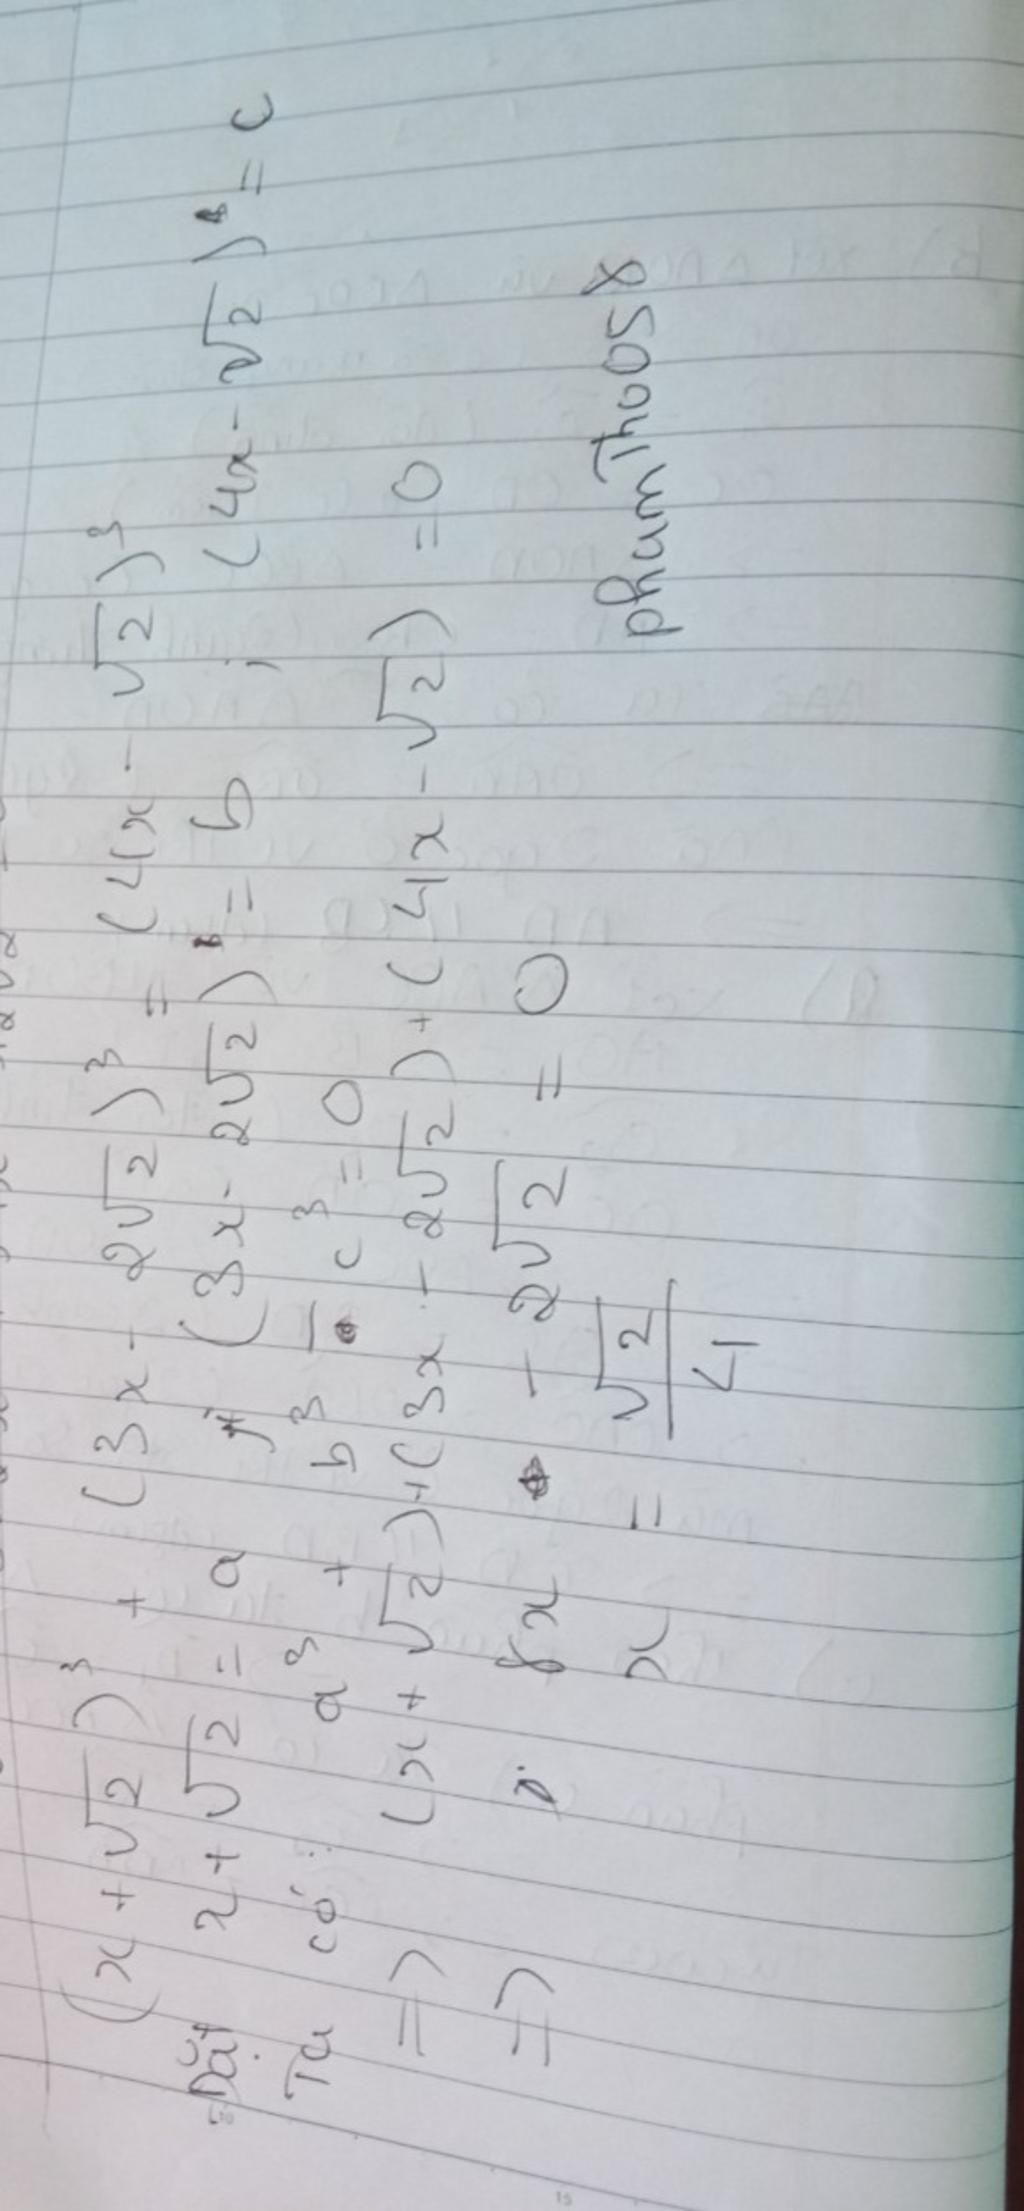 (x + √2)³ + (3x - 2√2)³ = (4x - √2)³
Đặt x + √2 = a ; (3x - 2√2) = b ; (4x - √2) = c
Ta có: a³ + b³ - c³ = 0
=> (x + √2) + (3x - 2√2) + (4x - √2) = 0
=> 8x - 2√2 = 0
x = √2/4
phamTho058